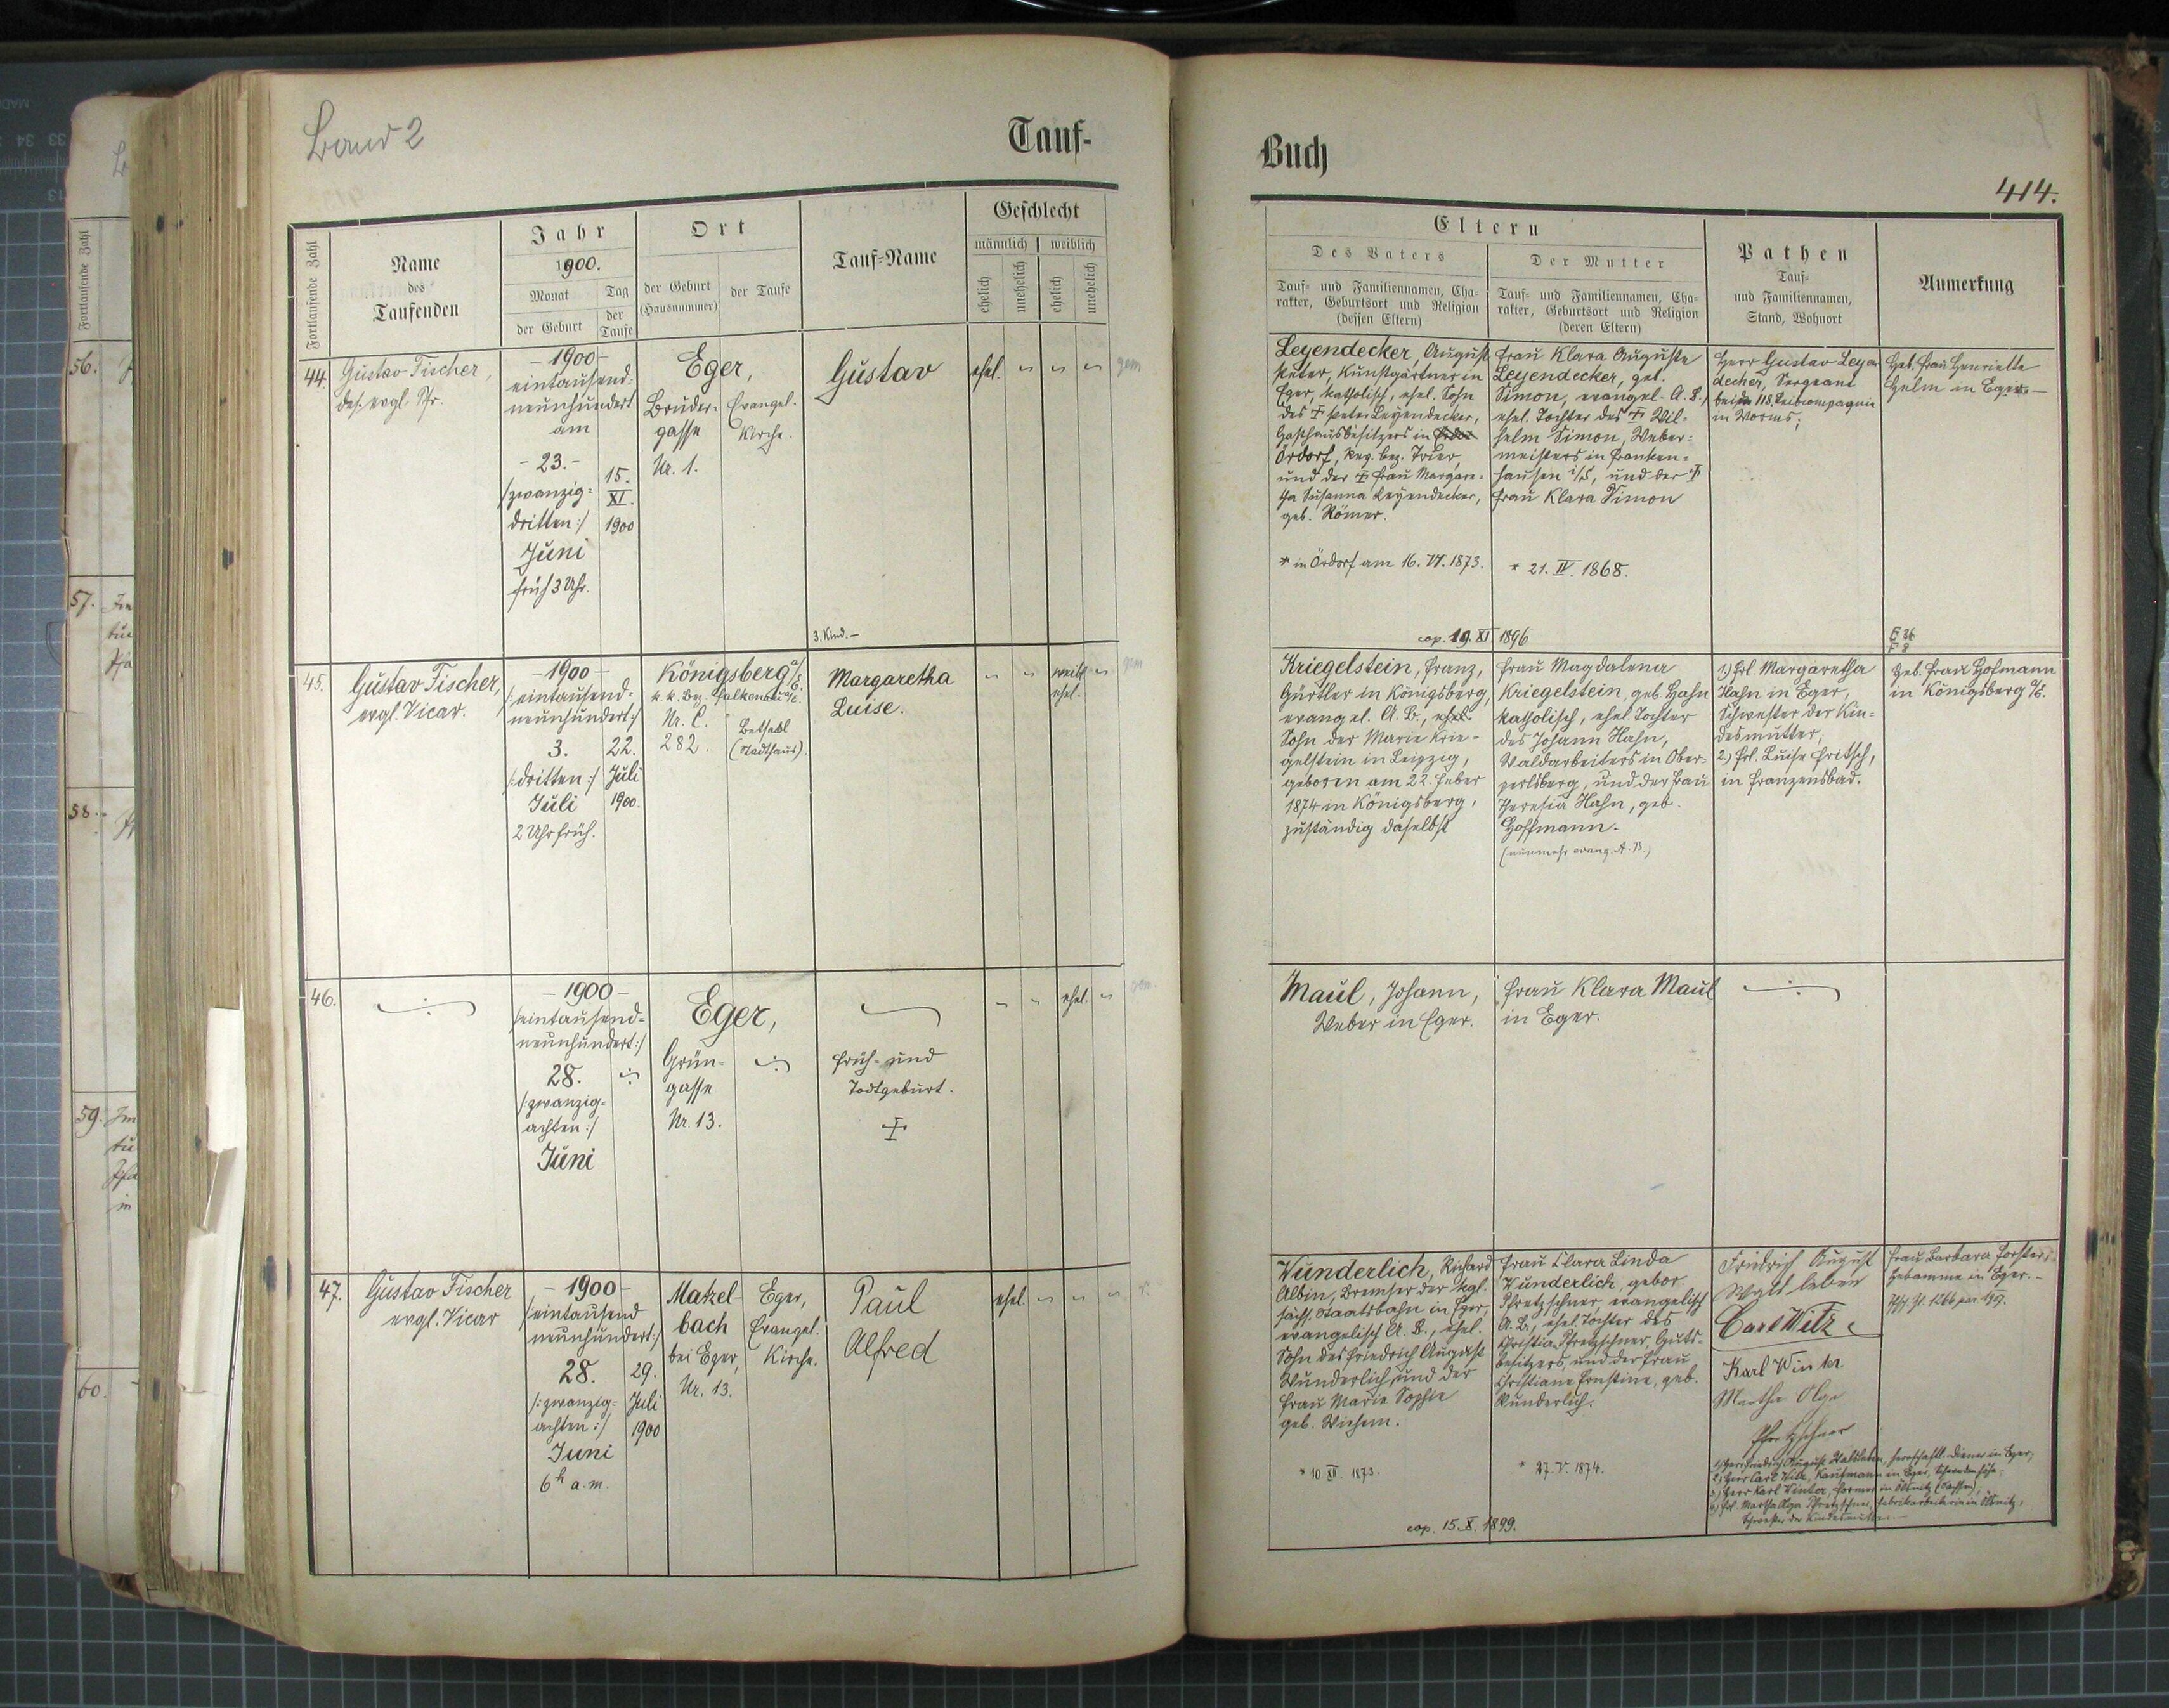 Band 2
Tauf-
Fortlaufende Zahl
Name
des
Taufenden
Jahr
1900.
Monat
der Geburt
Tag
der
Taufe
Ort
der Geburt
(Hausnummer)
der Taufe
Tauf-Name
Geschlecht
männlich
weiblich
ehelich
unehelich
ehelich
unehelich
44.
Gustav Fischer,
des. evgl. Pfr.
- 1900 -
eintausend-
neunhundert
am
- 23. -
/zwanzig-
dritten:/
Juni
früh 3 Uhr.
15.
XI.
1900
Eger,
Bruder-
gasse
Nr. 1.
Evangel.
Kirche.
Gustav
3. Kind. -
ehel.
gem
45.
Gustav Fischer,
evgl. Vicar.
- 1900 -
/:eintausend-
neunhundert:/
3.
/:dritten:/
Juli
2 Uhr früh.
22.
Juli
1900.
Königsberg a/E.
k. k. Bez. Falkenau a/E.
Nr. C.
282.
Betsaal
(Stadthaus).
Margaretha
Luise.
weibl.
ehel.
gem
46.
- 1900 -
/eintausend-
neunhundert:/
28.
/:zwanzig-
achten:/
Juni
Eger,
Grün-
gasse
Nr. 13.
Früh- und
Todtgeburt.
ehel.
gem.
47.
Gustav Fischer
evgl. Vicar
- 1900 -
/eintausend
neunhundert:/
28.
/:zwanzig-
achten:/
Juni
6h a.m.
29.
Juli
1900
Matzel-
bach
bei Eger,
Nr. 13.
Eger,
Evangel.
Kirche.
Paul
Alfred
ehel.
Buch
414.
Eltern
Des Vaters
Tauf- und Familiennamen, Cha-
rakter, Geburtsort und Religion
(dessen Eltern)
Der Mutter
Tauf- und Familiennamen, Cha-
rakter, Geburtsort und Religion
(deren Eltern)
Pathen
Tauf-
und Familiennamen,
Stand, Wohnort
Anmerkung
Leyendecker, August
Peter, Kunstgärtner in
Eger, katholisch, ehel. Sohn
des † Peter Leyendecker,
Gasthausbesitzers in
Ördorf, Reg. bez. Trier,
und der † Frau Margare-
tha Susanna Leyendecker,
geb. Römer.
* in Ördorf am 16. VI. 1873.
Frau Klara Auguste
Leyendecker, geb.
Simon, evangel. A. B.,
ehel. Tochter des † Wil-
helm Simon, Weber-
meisters in Franken-
hausen i/S, und der †
Frau Klara Simon
* 21. IV. 1868.
cop. 19. XI 1896
Herr Gustav Leyen
decker, Sergeant
bei der 118. Leibcompagnie
in Worms;
Heb. Frau Henriette
Helm in Eger. -
Kriegelstein, Franz,
Gürtler in Königsberg,
evangel. A. B., ehel.
Sohn der Marie Krie-
gelstein in Leipzig,
geboren am 22. Feber
1874 in Königsberg,
zuständig daselbst
Frau Magdalena
Kriegelstein, geb. Hahn
katholisch, ehel. Tochter
des Johann Hahn,
Waldarbeiters in Ober-
perlsberg, und der Frau
Theresia Hahn, geb.
Hoffmann.
(nunmehr evang. A. B.)
1.) Frl. Margaretha
Hahn in Eger,
Schwester der Kin-
desmutter,
2.) Frl. Luise Fritsch,
in Franzensbad.
Heb. Frau Hofmann
in Königsberg a/E.
Maul, Johann,
Weber in Eger.
Frau Klara Maul
in Eger.
Wunderlich, Richard
Albin, Bremser der kgl.
sächs. Staatsbahn in Eger,
evangelisch A. B., ehel.
Sohn des Friedrich August
Wunderlich und der
Frau Marie Sophie
geb. Wiesem.
* 10 XII. 1873.
Frau Clara Linda
Wunderlich, gebor.
Pfretzschner, evangelisch
A. B., ehel. Tochter des
Christian Pfretzschner, Guts-
besitzers, und der Frau
Christiane Ernstine, geb.
Wunderlich.
* 27. V. 1874.
cop. 15. X. 1899.
Friedrich August
Waltleben
Carl Witz
Karl Winter.
Martha Olga
Pfretzschner
1.) Herr Friedrich August Waltleben, herrschaftl. Diener in Eger,
2.) Herr Carl Witz, Kaufmann in Eger,
3.) Herr Karl Winter, Former in Ölsnitz (Sachsen),
4.) Frl. Martha Olga Pfretzschner, Fabrikarbeiterin in Ölsnitz,
Schwester der Kindesmutter. -
Frau Barbara Forster,
Hebamme in Eger. -
56.
57.
58.
59.
60.